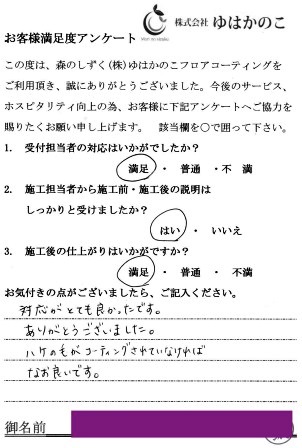 株式会社 ゆはかのこ
お客様満足度アンケート
この度は、森のしずく(株)ゆはかのこフロアコーティングを
ご利用頂き、誠にありがとうございました。今後のサービス、
ホスピタリティ向上の為、お客様に下記アンケートへご協力を
賜りたくお願い申し上げます。 該当欄を○で囲って下さい。
1. 受付担当者の対応はいかがでしたか?
満足 ・ 普通 ・不 満
2. 施工担当者から施工前・施工後の説明は
しっかりと受けましたか?
はい ・ いいえ
3. 施工後の仕上がりはいかがですか?
満足 ・ 普通 ・ 不満
お気付きの点がございましたら、ご記入ください。
対応がとても良かったです。
ありがとうございました。
ハケの毛がコーティングされていなければ
なお良いです。
御名前